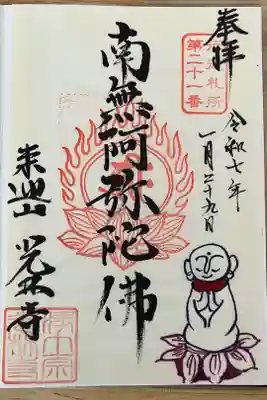 奉拝
第二十一番
令和七年
一月二十九日
南無阿弥陀佛
来迎山
光林寺